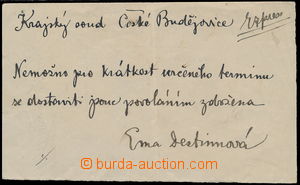 Krajský soud České Budějovice Express
Nemožno pro krátkost určeného terminu
se dostaviti jsouc povoláním zdržena
Ema Destinnová
© burda-auction.com